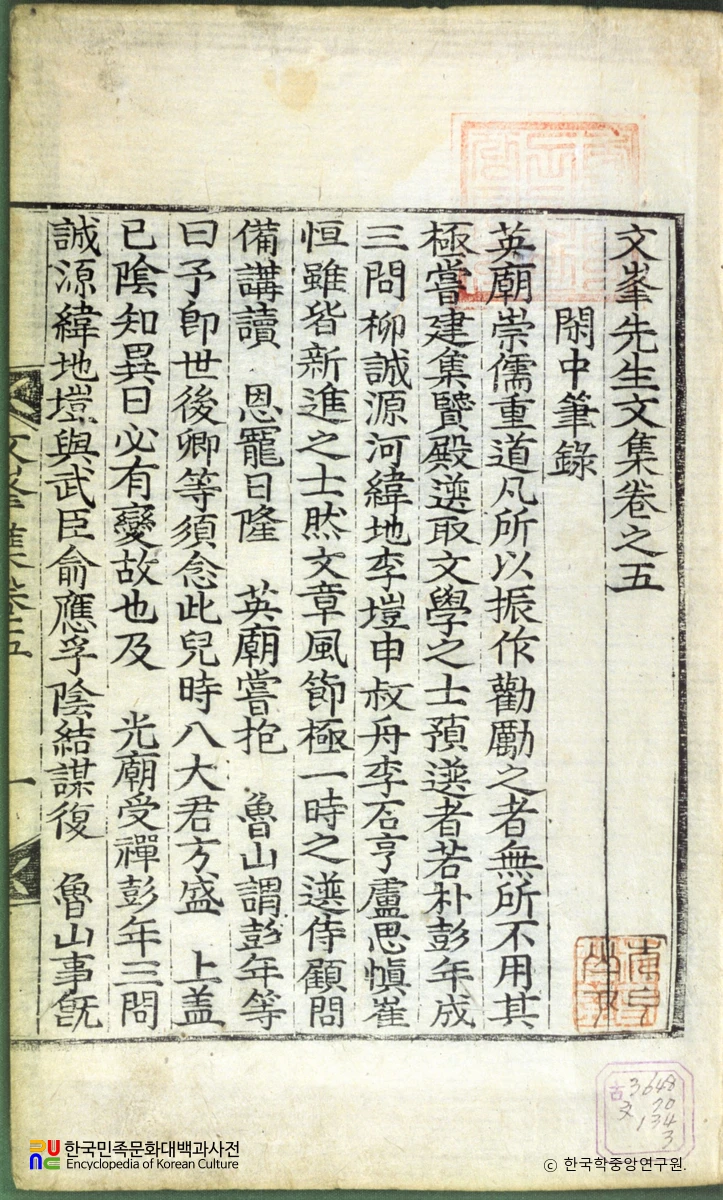 文峯先生文集卷之五
閑中筆錄
英廟崇儒重道凡所以振作勸勵之者無所不用其
極嘗建集賢殿選取文學之士預選者若朴彭年成
三問柳誠源河緯地李塏申叔舟李石亨盧思愼崔
恒雖皆新進之士然文章風節極一時之選侍顧問
備講讀 恩寵日隆 英廟嘗抱 魯山謂彭年等
曰予卽世後卿等須念此兒時八大君方盛 上盖
已陰知異日必有變故也及 光廟受禪彭年三問
誠源緯地塏與武臣俞應孚陰結謀復 魯山事旣
文峯集卷五
一
古 3648
文 70
134
3
한국민족문화대백과사전
Encyclopedia of Korean Culture
ⓒ 한국학중앙연구원.